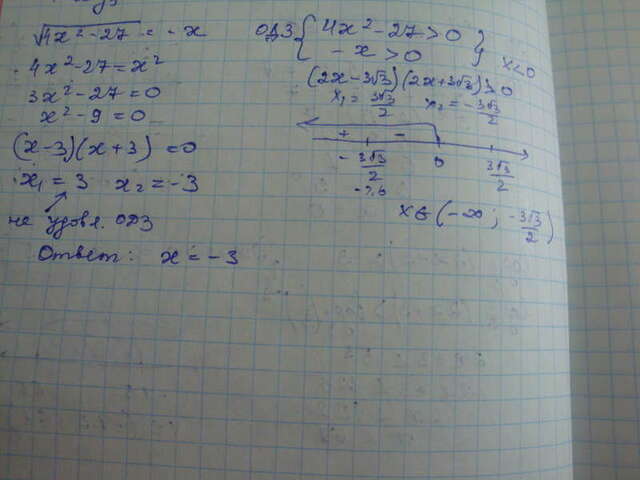 √4x² - 27 = - x
4x² - 27 = x²
3x² - 27 = 0
x² - 9 = 0
(x - 3)(x + 3) = 0
x₁ = 3 x₂ = -3
не удовл. ОДЗ
Ответ: x = - 3
ОДЗ { 4x² - 27 > 0
- x > 0 } x < 0
(2x - 3√3)(2x + 3√3) > 0
x₁ = 3√3/2 x₂ = - 3√3/2
+ -
- 3√3/2 0 3√3/2
-2,6
x ∈ (- ∞ ; -3√3/2)